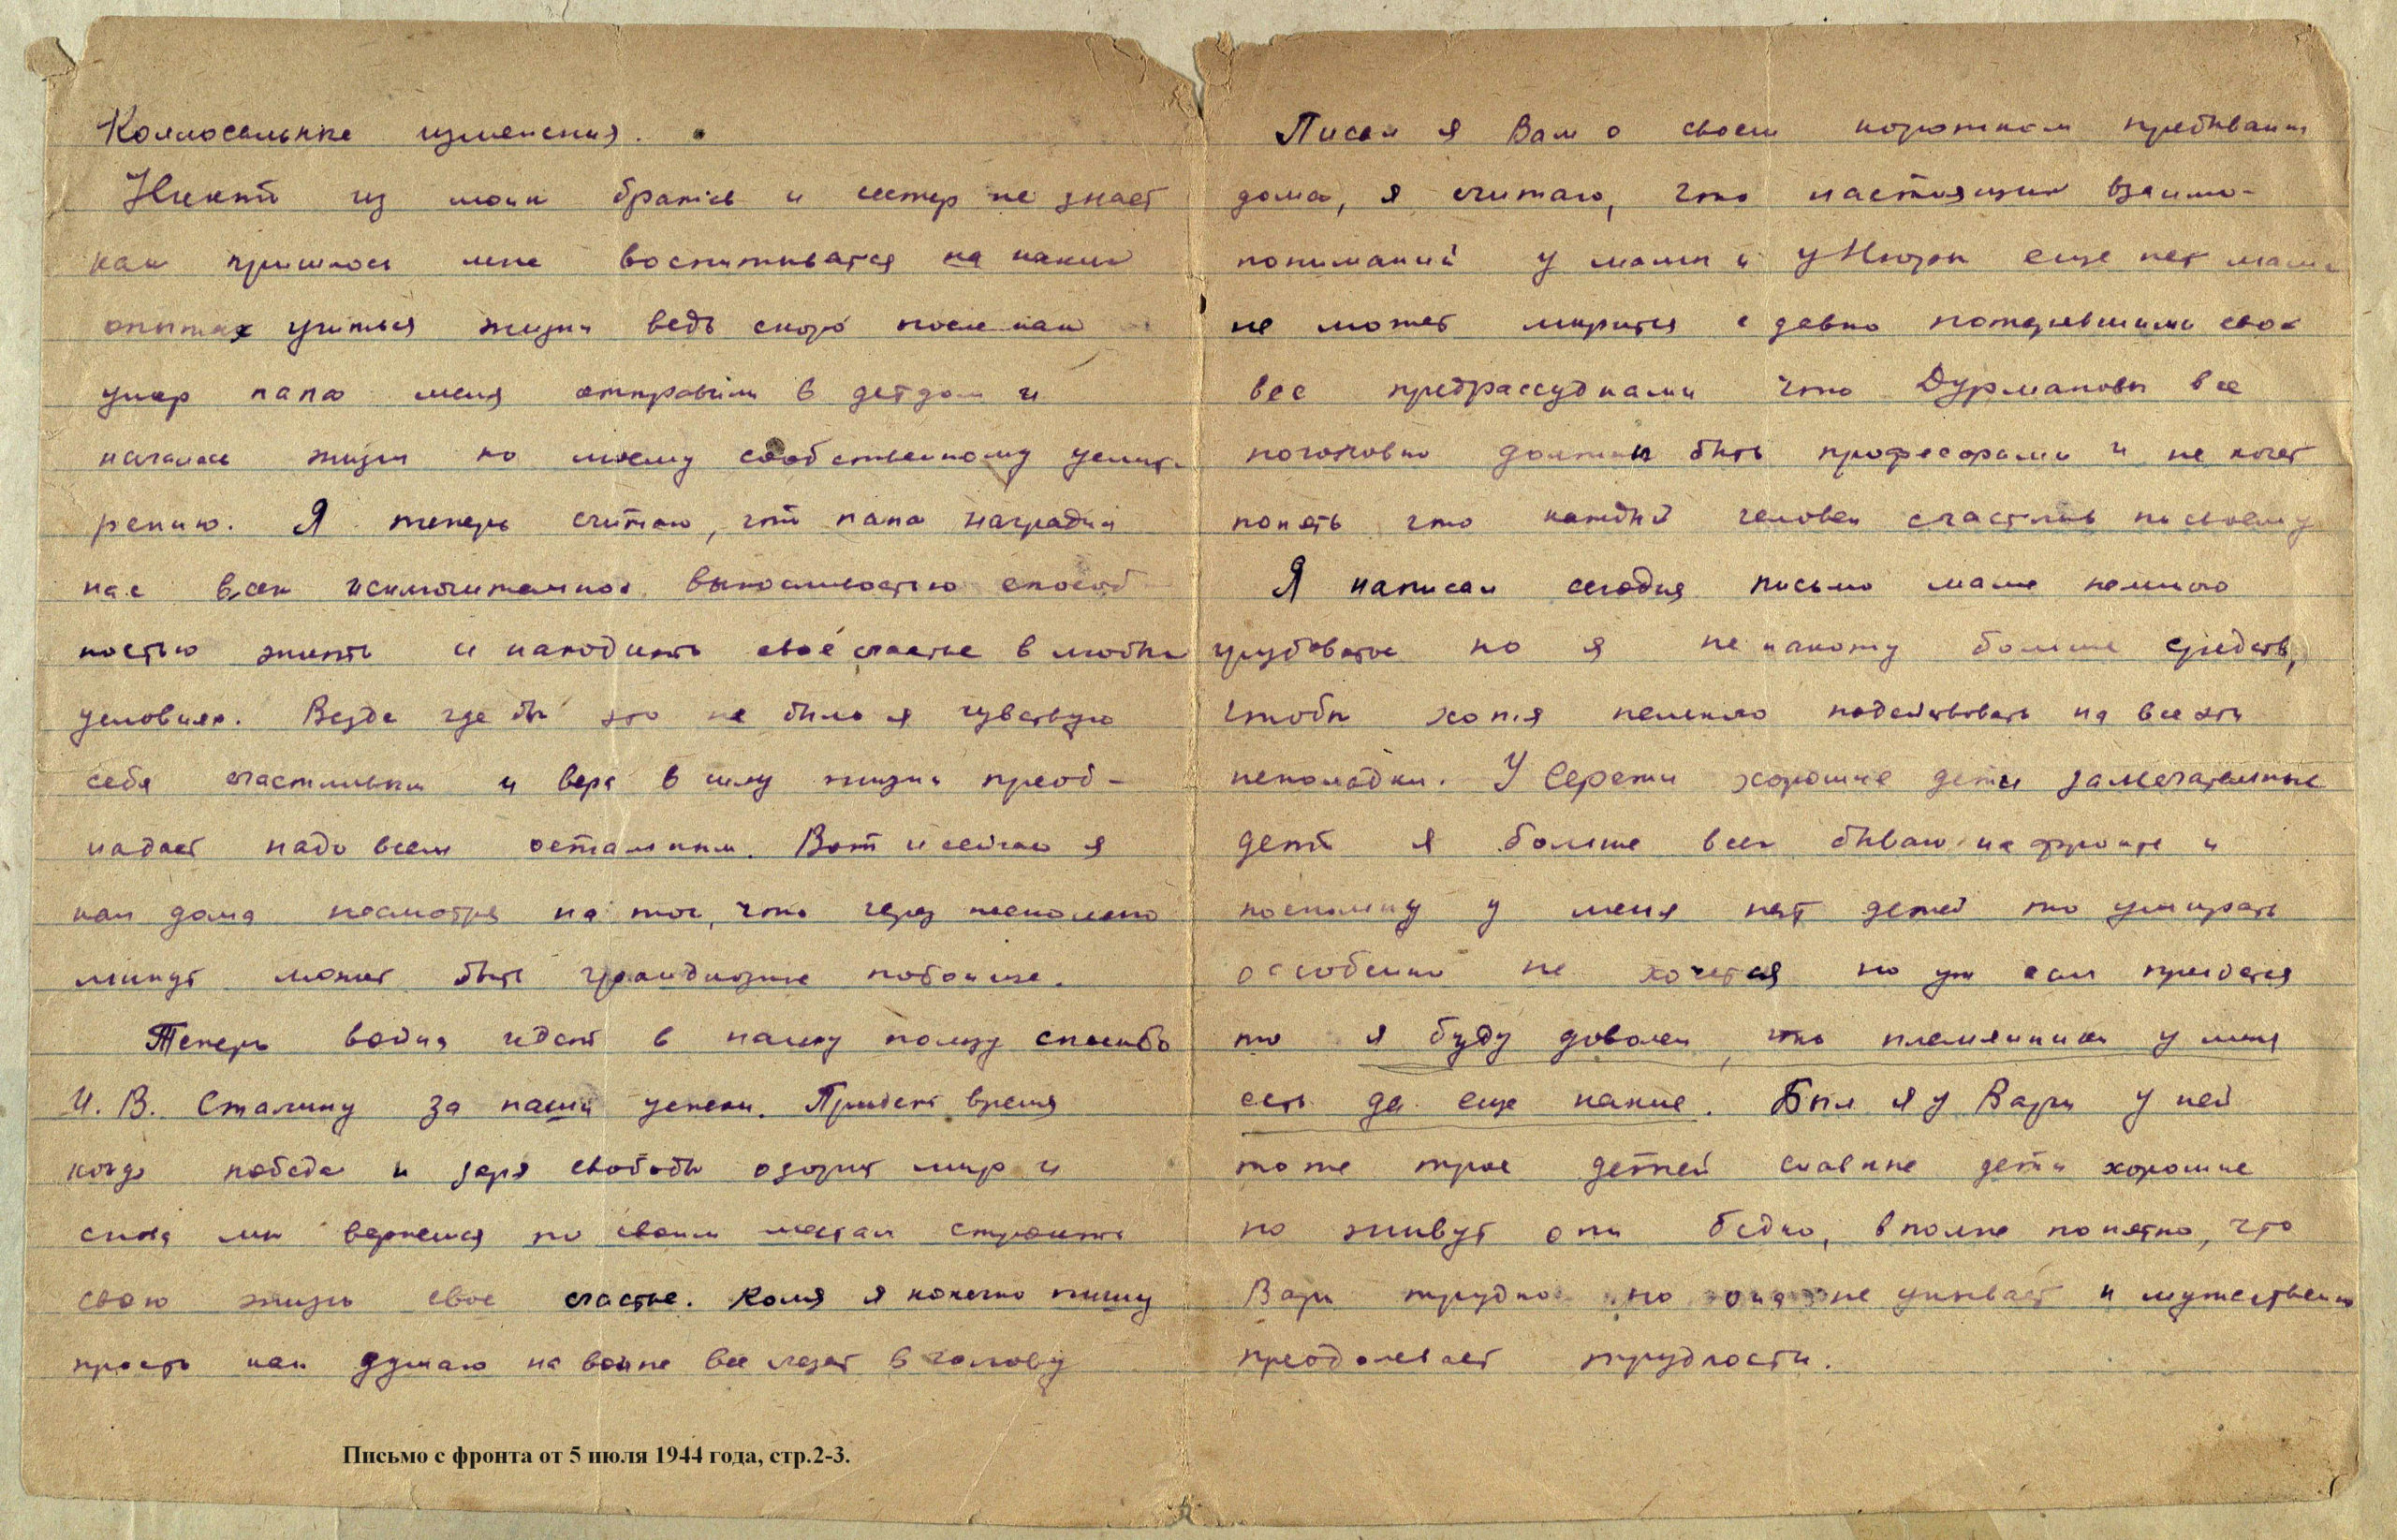 Коллосальные изменения.
Никто из моих братьев и сестер не знает
как пришлось мне воспитыватся на каких
опытах учиться жизни ведь скоро после как
умер папа меня отправили в детдом и
началась жизнь по моему сообственному усмот-
рению. Я теперь считаю, что папа наградил
нас всех исключительной выносливостью способ
ностью жить и находить своё счастье в любых
условиях. Везде где бы это не было я чувствую
себя счастливым и вера в силу жизни преоб-
ладает надо всем остальным. Вот и сейчас я
как дома несмотря на то, что через несколько
минут может быть грандиозное побоище.
Теперь война идет в нашу пользу спасибо
И. В. Сталину за наши успехи. Придет время
когда победа и заря свободы озарит мир и
снова мы вернемся по своим местам строить
свою жизнь свое счастье. Коля я конечно пишу
просто как думаю на войне все лезет в голову
Писал я Вам о своем коротком пребывании
дома, я считаю, что настоящих взаимо-
пониманий у мамы и у Нюры еще нет мама
не может мирится с давно потерявшими свой
вес предрассудками что Дурмановы все
поголовно должны быть професорами и не хочет
понять что каждый человек счастлив по своему
Я написал сегодня письмо маме немного
грубоватое но я не нахожу больше средств,
чтобы хотя немного подействовать на все эти
неполадки. У Сережи хорошие дети замечательные
дети я больше всех бываю на фронте и
поскольку у меня нет детей то умирать
особенно не хочется но уж если придется
то я буду доволен, что племянники у меня
есть да еще какие. Был я у Вари у ней
тоже трое детей славные дети хорошие
но живут они бедно, вполне понятно, что
Вари трудно но она не унывает и мужественно
преодолевает трудности.
Письмо с фронта от 5 июля 1944 года, стр.2-3.